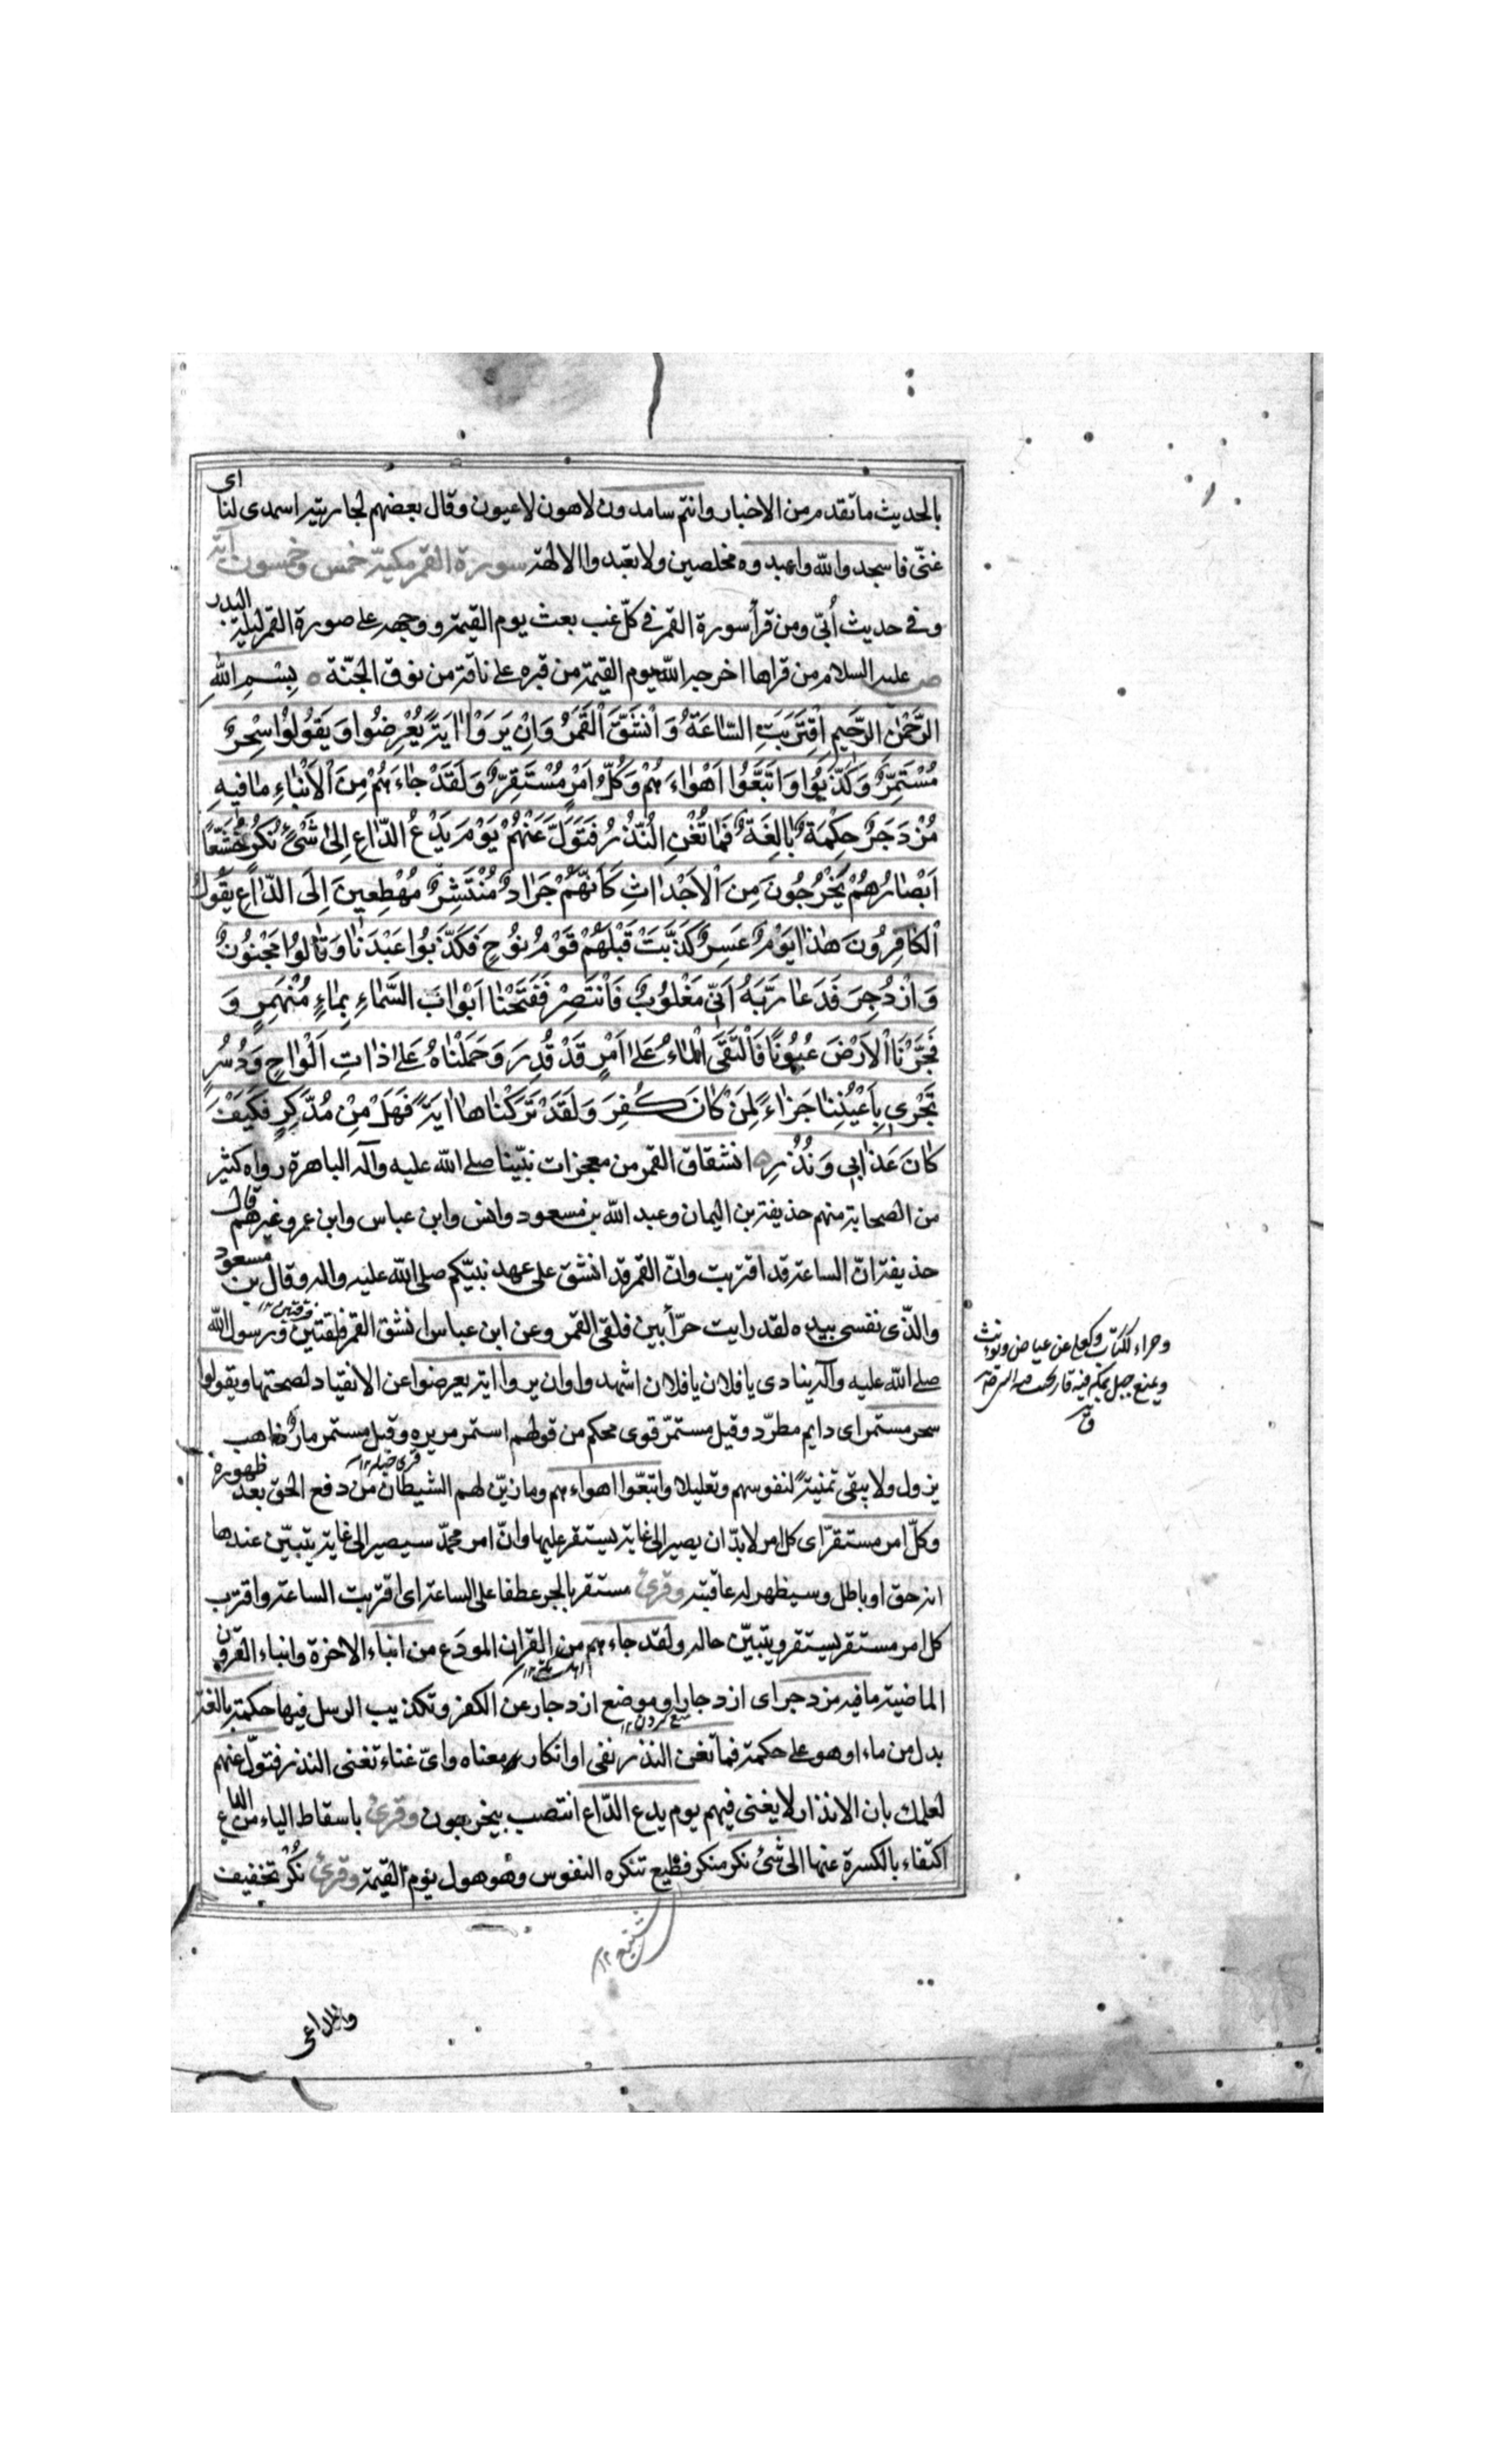 بالحديث ما تقدم من الاخبار وانتم سامدون لاهون لاعبون وقال بعضهم لجاريته اسمدى لنا اى
غنّى فاسجدوا لله واعبدوه مخلصين ولا تعبدوا الالهة سورة القمر مكية خمس وخمسون آية
وفي حديث أُبىّ ومن قرأ سورة القمر في كلّ غب بعث يوم القيمة ووجهه على صورة القمر ليلة البدر
ص عليه السلام من قراها اخرجه الله يوم القيمة من قبره على ناقة من نوق الجنّة بِسْمِ اللهِ
الرَّحْمٰنِ الرَّحِيمِ اِقْتَرَبَتِ السّاعَةُ وَانْشَقَّ الْقَمَرُ وَاِنْ يَرَوْا اٰيَةً يُعْرِضُوا وَيَقُولُوا سِحْرٌ
مُسْتَمِرٌّ وَكَذَّبُوا وَاتَّبَعُوا اَهْوٰاءَهُمْ وَكُلُّ اَمْرٍ مُسْتَقِرٌّ وَلَقَدْ جٰاءَهُمْ مِنَ الْاَنْبٰاءِ مٰا فِيهِ
مُزْدَجَرٌ حِكْمَةٌ بٰالِغَةٌ فَمٰا تُغْنِ النُّذُرُ فَتَوَلَّ عَنْهُمْ يَوْمَ يَدْعُ الدّٰاعِ اِلىٰ شَىْءٍ نُكُرٍ خُشَّعاً
اَبْصٰارُهُمْ يَخْرُجُونَ مِنَ الْاَجْدٰاثِ كَاَنَّهُمْ جَرٰادٌ مُنْتَشِرٌ مُهْطِعِينَ اِلَى الدّٰاعِ يَقُولُ
الْكٰافِرُونَ هٰذٰا يَوْمٌ عَسِرٌ كَذَّبَتْ قَبْلَهُمْ قَوْمُ نُوحٍ فَكَذَّبُوا عَبْدَنٰا وَقٰالُوا مَجْنُونٌ
وَازْدُجِرَ فَدَعٰا رَبَّهُ اَنّى مَغْلُوبٌ فَانْتَصِرْ فَفَتَحْنٰا اَبْوٰابَ السَّمٰاءِ بِمٰاءٍ مُنْهَمِرٍ وَ
فَجَّرْنَا الْاَرْضَ عُيُونًا فَالْتَقَى الْمٰاءُ عَلىٰ اَمْرٍ قَدْ قُدِرَ وَحَمَلْنٰاهُ عَلىٰ ذٰاتِ اَلْوٰاحٍ وَدُسُرٍ
تَجْرِى بِاَعْيُنِنٰا جَزٰاءً لِمَنْ كٰانَ كُفِرَ وَلَقَدْ تَرَكْنٰاهٰا اٰيَةً فَهَلْ مِنْ مُدَّكِرٍ فَكَيْفَ
كٰانَ عَذٰابِى وَنُذُرِ انشقاق القمر من معجزات نبيّنا صلى الله عليه وآله الباهرة رواه كثير
من الصحابة منهم حذيفة بن اليمان وعبد الله بن مسعود وانس وابن عباس وابن عمر وغيرهم قال
حذيفة انّ الساعة قد اقتربت وانّ القمر قد انشق على عهد نبيّكم صلى الله عليه واله وقال بن مسعود
والذّى نفسى بيده لقد رايت حرّاً بين فلقى القمر وعن ابن عباس انشق القمر فلقتين ورسول الله
صلى الله عليه وآله ينادى يا فلان يا فلان اشهدوا وان يروا اية يعرضوا عن الانقياد لصحتها ويقولوا
سحر مستمر اى دايم مطرّد وقيل مستمرّ قوى محكم من قولهم استمر مريره وقيل مستمر مارّ ذاهب
يزول ولا يبقى تمنيةً لنفوسهم وتعليلا واتبعّوا اهواءهم وما زيّن لهم الشيطان من دفع الحق بعد ظهوره
وكلّ امر مستقرّ اى كل امر لا بدّ ان يصير الى غاية يستقر عليها وانّ امر محمّد سيصير الى غاية يتبيّن عندها
انه حق او باطل وسيظهر له عاقبته وقرئ مستقر بالجر عطفا على الساعة اى اقتربت الساعة واقترب
كل امر مستقر يستقر ويتبيّن حاله ولقد جاءهم من القران المودَع من انباء الاخرة وانباء القرون
الماضية ما فيه مزدجر اى ازدجار او موضع ازدجار عن الكفر وتكذيب الرسل فيها حكمة بالغة
بدل من ماء او هو على حكمة فما تغن النذر نفى او انكار معناه واىّ غناء تغنى النذر فتولّ عنهم
لعلمك بان الانذار لا يغنى فيهم يوم يدع الدّاع انتصب بيخرجون وقرئ باسقاط الياء من الداع
اكتفاء بالكسرة عنها الى شئ نكر منكر فظيع تنكره النفوس وهو هول يوم القيمة وقرئ نُكْر تخفيف
شنيع ١٢